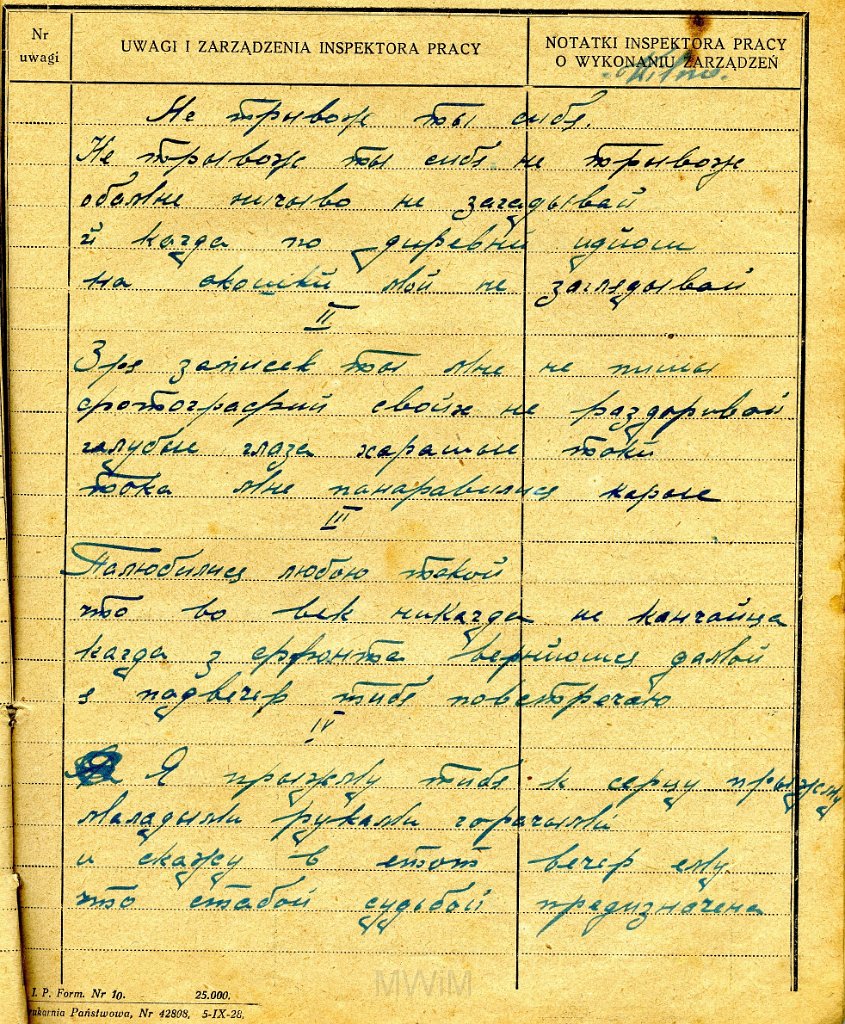 Nr
uwagi
UWAGI I ZARZĄDZENIA INSPEKTORA PRACY
NOTATKI INSPEKTORA PRACY
O WYKONANIU ZARZĄDZEŃ
Не трывож ты сибя.
Не трывож ты сибя не трывож
обамне ничыво не загадывай
й кагда по диревни идйош
на окошки мой не заглядывай
II
Зря записек ты мне не пишы
фотографий свойх не раздоривай
галубые глаза харашые таки
тока мне панаравились карые
III
Палюбилися любою такой
что во век никагда не канчайца
кагда з фронта вернйошся дамой
я падвечер тибя повстречаю
IV
Я прыжму тибя к серцу прыжму
маладыми руками горачыми
и скажу в етот вечер ему
что стабой судьбой предизначена
MWiM
I. P. Form. Nr 10. 25.000.
Drukarnia Państwowa, Nr 42808, 5-IX-28.